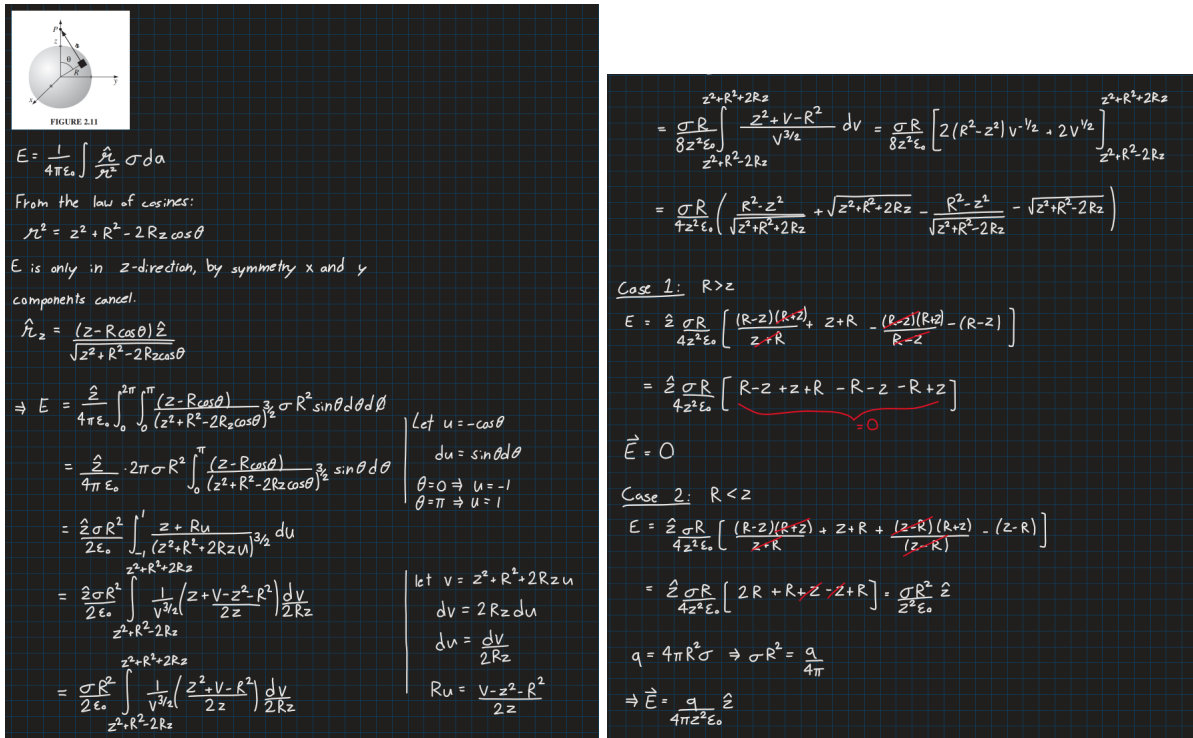 P
z
𝓇
θ
R
y
x
FIGURE 2.11
E = 1/(4πε₀) ∫ 𝓇̂/𝓇² σ da
From the law of cosines:
𝓇² = z² + R² - 2Rz cosθ
E is only in z-direction, by symmetry x and y
components cancel.
𝓇̂_z = (z - R cosθ) ẑ / √(z² + R² - 2Rz cosθ)
⇒ E = ẑ/(4πε₀) ∫₀^{2π} ∫₀^π (z - R cosθ)/(z² + R² - 2Rz cosθ)^{3/2} σ R² sinθ dθ dØ
= ẑ/(4πε₀) · 2πσR² ∫₀^π (z - R cosθ)/(z² + R² - 2Rz cosθ)^{3/2} sinθ dθ
Let u = -cosθ
du = sinθ dθ
θ=0 ⇒ u = -1
θ=π ⇒ u = 1
= ẑσR²/(2ε₀) ∫_{-1}^{1} (z + Ru)/(z² + R² + 2Rzu)^{3/2} du
= ẑσR²/(2ε₀) ∫_{z²+R²-2Rz}^{z²+R²+2Rz} 1/v^{3/2} (z + (v - z² - R²)/(2z)) dv/(2Rz)
= σR²/(2ε₀) ∫_{z²+R²-2Rz}^{z²+R²+2Rz} 1/v^{3/2} ((z² + v - R²)/(2z)) dv/(2Rz)
let v = z² + R² + 2Rzu
dv = 2Rz du
du = dv/(2Rz)
Ru = (v - z² - R²)/(2z)
= σR/(8z²ε₀) ∫_{z²+R²-2Rz}^{z²+R²+2Rz} (z² + v - R²)/v^{3/2} dv = σR/(8z²ε₀) [2(R² - z²) v^{-1/2} + 2v^{1/2}]_{z²+R²-2Rz}^{z²+R²+2Rz}
= σR/(4z²ε₀) ( (R² - z²)/√(z²+R²+2Rz) + √(z²+R²+2Rz) - (R² - z²)/√(z²+R²-2Rz) - √(z²+R²-2Rz) )
Case 1: R>z
E = ẑ σR/(4z²ε₀) [ (R-z)(R+z)/(z+R) + z+R - (R-z)(R+z)/(R-z) - (R-z) ]
= ẑ σR/(4z²ε₀) [ R-z +z+R -R-z -R+z ]
=0
E⃗ = 0
Case 2: R<z
E = ẑ σR/(4z²ε₀) [ (R-z)(R+z)/(z+R) + z+R + (z-R)(R+z)/(z-R) - (z-R) ]
= ẑ σR/(4z²ε₀) [ 2R + R+z -z+R ] = σR²/(z²ε₀) ẑ
q = 4πR²σ ⇒ σR² = q/(4π)
⇒ E⃗ = q/(4πz²ε₀) ẑ